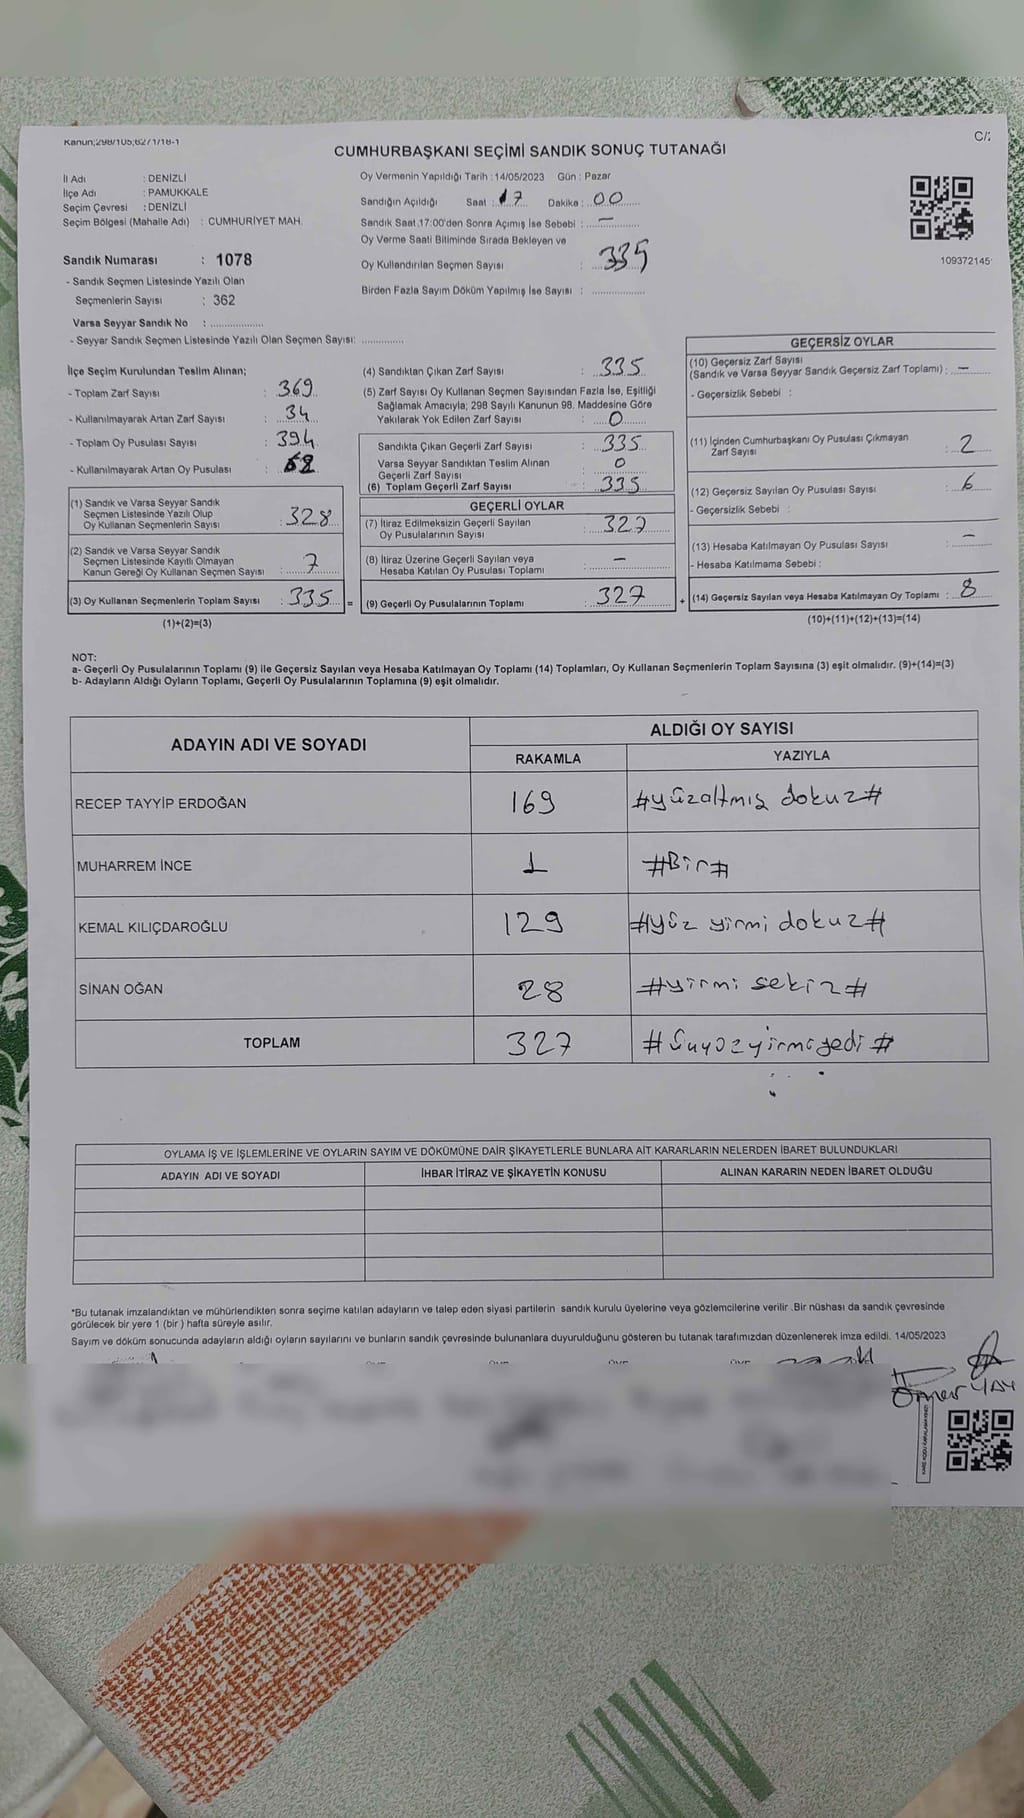 Kanun;298/105;6271/18-1
C/2
CUMHURBAŞKANI SEÇİMİ SANDIK SONUÇ TUTANAĞI
İl Adı : DENİZLİ
İlçe Adı : PAMUKKALE
Seçim Çevresi : DENİZLİ
Seçim Bölgesi (Mahalle Adı) : CUMHURİYET MAH.
Sandık Numarası : 1078
- Sandık Seçmen Listesinde Yazılı Olan
Seçmenlerin Sayısı : 362
Varsa Seyyar Sandık No : ................
- Seyyar Sandık Seçmen Listesinde Yazılı Olan Seçmen Sayısı: ............
Oy Vermenin Yapıldığı Tarih : 14/05/2023 Gün : Pazar
Sandığın Açıldığı Saat : 17 Dakika : 00
Sandık Saat 17:00'den Sonra Açımış İse Sebebi : —
Oy Verme Saati Bitiminde Sırada Bekleyen ve
Oy Kullandırılan Seçmen Sayısı : 335
Birden Fazla Sayım Döküm Yapılmış İse Sayısı : ................
109372145
İlçe Seçim Kurulundan Teslim Alınan;
- Toplam Zarf Sayısı : 369
- Kullanılmayarak Artan Zarf Sayısı : 34
- Toplam Oy Pusulası Sayısı : 394
- Kullanılmayarak Artan Oy Pusulası :
(1) Sandık ve Varsa Seyyar Sandık
Seçmen Listesinde Yazılı Olup
Oy Kullanan Seçmenlerin Sayısı : 328
(2) Sandık ve Varsa Seyyar Sandık
Seçmen Listesinde Kayıtlı Olmayan
Kanun Gereği Oy Kullanan Seçmen Sayısı : 7
(3) Oy Kullanan Seçmenlerin Toplam Sayısı : 335 =
(1)+(2)=(3)
(4) Sandıktan Çıkan Zarf Sayısı : 335
(5) Zarf Sayısı Oy Kullanan Seçmen Sayısından Fazla İse, Eşitliği
Sağlamak Amacıyla; 298 Sayılı Kanunun 98. Maddesine Göre
Yakılarak Yok Edilen Zarf Sayısı : 0
Sandıkta Çıkan Geçerli Zarf Sayısı : 335
Varsa Seyyar Sandıktan Teslim Alınan
Geçerli Zarf Sayısı : 0
(6) Toplam Geçerli Zarf Sayısı : 335
GEÇERLİ OYLAR
(7) İtiraz Edilmeksizin Geçerli Sayılan
Oy Pusulalarının Sayısı : 327
(8) İtiraz Üzerine Geçerli Sayılan veya
Hesaba Katılan Oy Pusulası Toplamı : —
(9) Geçerli Oy Pusulalarının Toplamı : 327 +
GEÇERSİZ OYLAR
(10) Geçersiz Zarf Sayısı
(Sandık ve Varsa Seyyar Sandık Geçersiz Zarf Toplamı) : —
- Geçersizlik Sebebi :
(11) İçinden Cumhurbaşkanı Oy Pusulası Çıkmayan
Zarf Sayısı : 2
(12) Geçersiz Sayılan Oy Pusulası Sayısı : 6
- Geçersizlik Sebebi :
(13) Hesaba Katılmayan Oy Pusulası Sayısı : —
- Hesaba Katılmama Sebebi :
(14) Geçersiz Sayılan veya Hesaba Katılmayan Oy Toplamı : 8
(10)+(11)+(12)+(13)=(14)
NOT:
a- Geçerli Oy Pusulalarının Toplamı (9) ile Geçersiz Sayılan veya Hesaba Katılmayan Oy Toplamı (14) Toplamları, Oy Kullanan Seçmenlerin Toplam Sayısına (3) eşit olmalıdır. (9)+(14)=(3)
b- Adayların Aldığı Oyların Toplamı, Geçerli Oy Pusulalarının Toplamına (9) eşit olmalıdır.
ADAYIN ADI VE SOYADI ALDIĞI OY SAYISI
RAKAMLA YAZIYLA
RECEP TAYYİP ERDOĞAN 169 #yüzaltmış dokuz#
MUHARREM İNCE 1 #Bir#
KEMAL KILIÇDAROĞLU 129 #yüz yirmi dokuz#
SİNAN OĞAN 28 #yirmi sekiz#
TOPLAM 327 #üçyüzyirmiyedi#
OYLAMA İŞ VE İŞLEMLERİNE VE OYLARIN SAYIM VE DÖKÜMÜNE DAİR ŞİKAYETLERLE BUNLARA AİT KARARLARIN NELERDEN İBARET BULUNDUKLARI
ADAYIN ADI VE SOYADI İHBAR İTİRAZ VE ŞİKAYETİN KONUSU ALINAN KARARIN NEDEN İBARET OLDUĞU
*Bu tutanak imzalandıktan ve mühürlendikten sonra seçime katılan adayların ve talep eden siyasi partilerin sandık kurulu üyelerine veya gözlemcilerine verilir .Bir nüshası da sandık çevresinde
görülecek bir yere 1 (bir ) hafta süreyle asılır.
Sayım ve döküm sonucunda adayların aldığı oyların sayılarını ve bunların sandık çevresinde bulunanlara duyurulduğunu gösteren bu tutanak tarafımızdan düzenlenerek imza edildi. 14/05/2023
Ömer